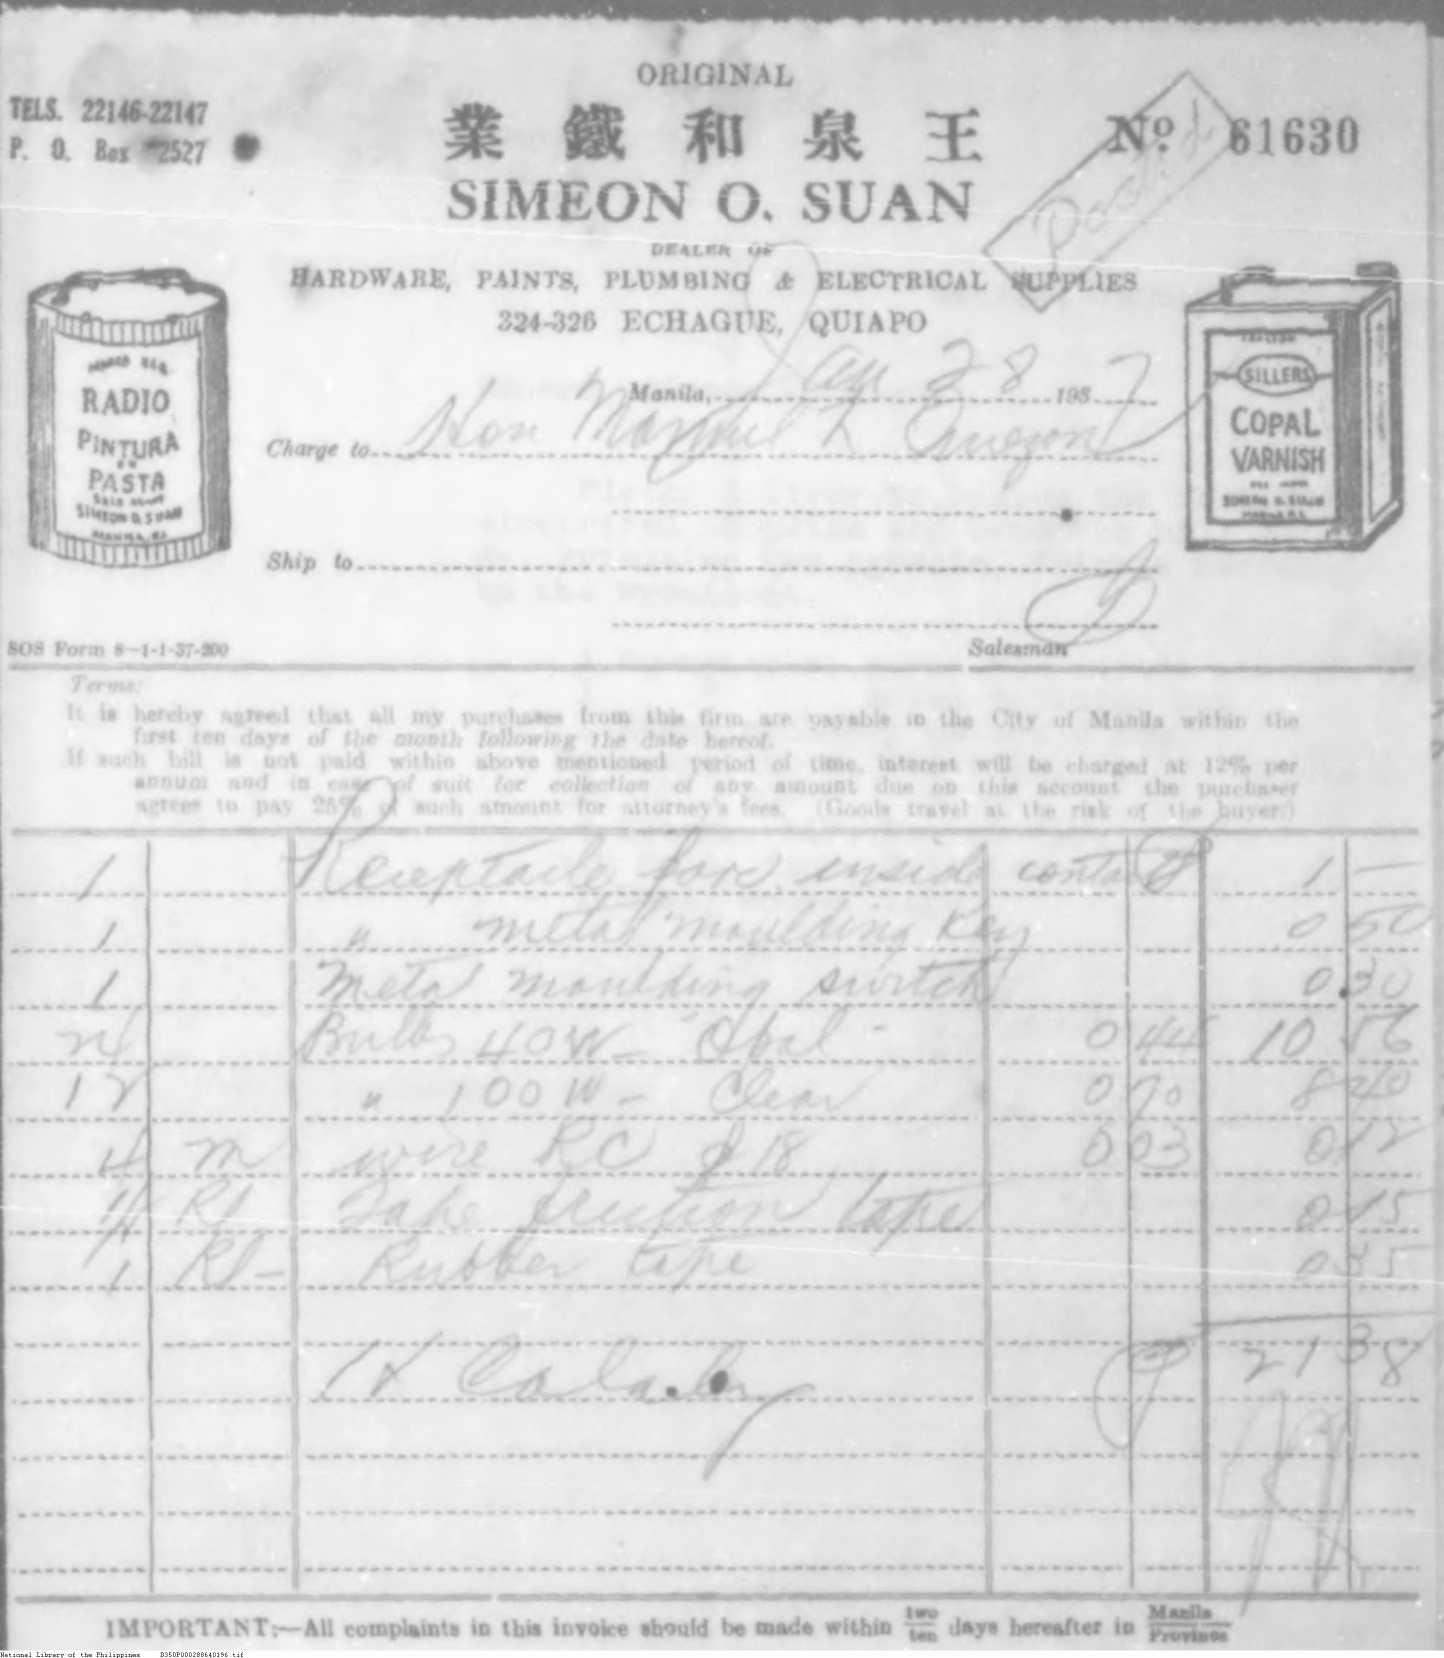 ORIGINAL
TELS. 22146-22147
P. O. Box 2527
業 鐵 和 泉 王
Nº 61630
Posted
SIMEON O. SUAN
DEALER OF
HARDWARE, PAINTS, PLUMBING & ELECTRICAL SUPPLIES
324-326 ECHAGUE, QUIAPO
Manila, Jan 28 1937
Charge to Hon Manuel L Quezon
Ship to
RADIO
PINTURA
EN
PASTA
SOLD ONLY
SIMEON O. SUAN
MANILA, P.I.
SILLERS
COPAL
VARNISH
SIMEON O. SUAN
MANILA P.I.
SOS Form 8-1-1-37-200
Salesman
Terms:
It is hereby agreed that all my purchases from this firm are payable in the City of Manila within the
first ten days of the month following the date hereof.
If such bill is not paid within above mentioned period of time, interest will be charged at 12% per
annum and in case of suit for collection of any amount due on this account the purchaser
agrees to pay 25% of such amount for attorney's fees. (Goods travel at the risk of the buyer.)
1 Receptacle porc. inside contact 1 —
1 " metal moulding Key 0 50
1 Metal moulding switch 0 30
24 Bulbs 40W - "Opal" 0 44 10 56
12 " 100W - Clear 0 70 8 40
4 m wire RC # 18 0 03 0 12
1 Rl Tape friction tape 0 15
1 Rl- Rubber tape 0 35
21 38
IMPORTANT:—All complaints in this invoice should be made within two/ten days hereafter in Manila/Province
National Library of the Philippines D350P000288640196.tif